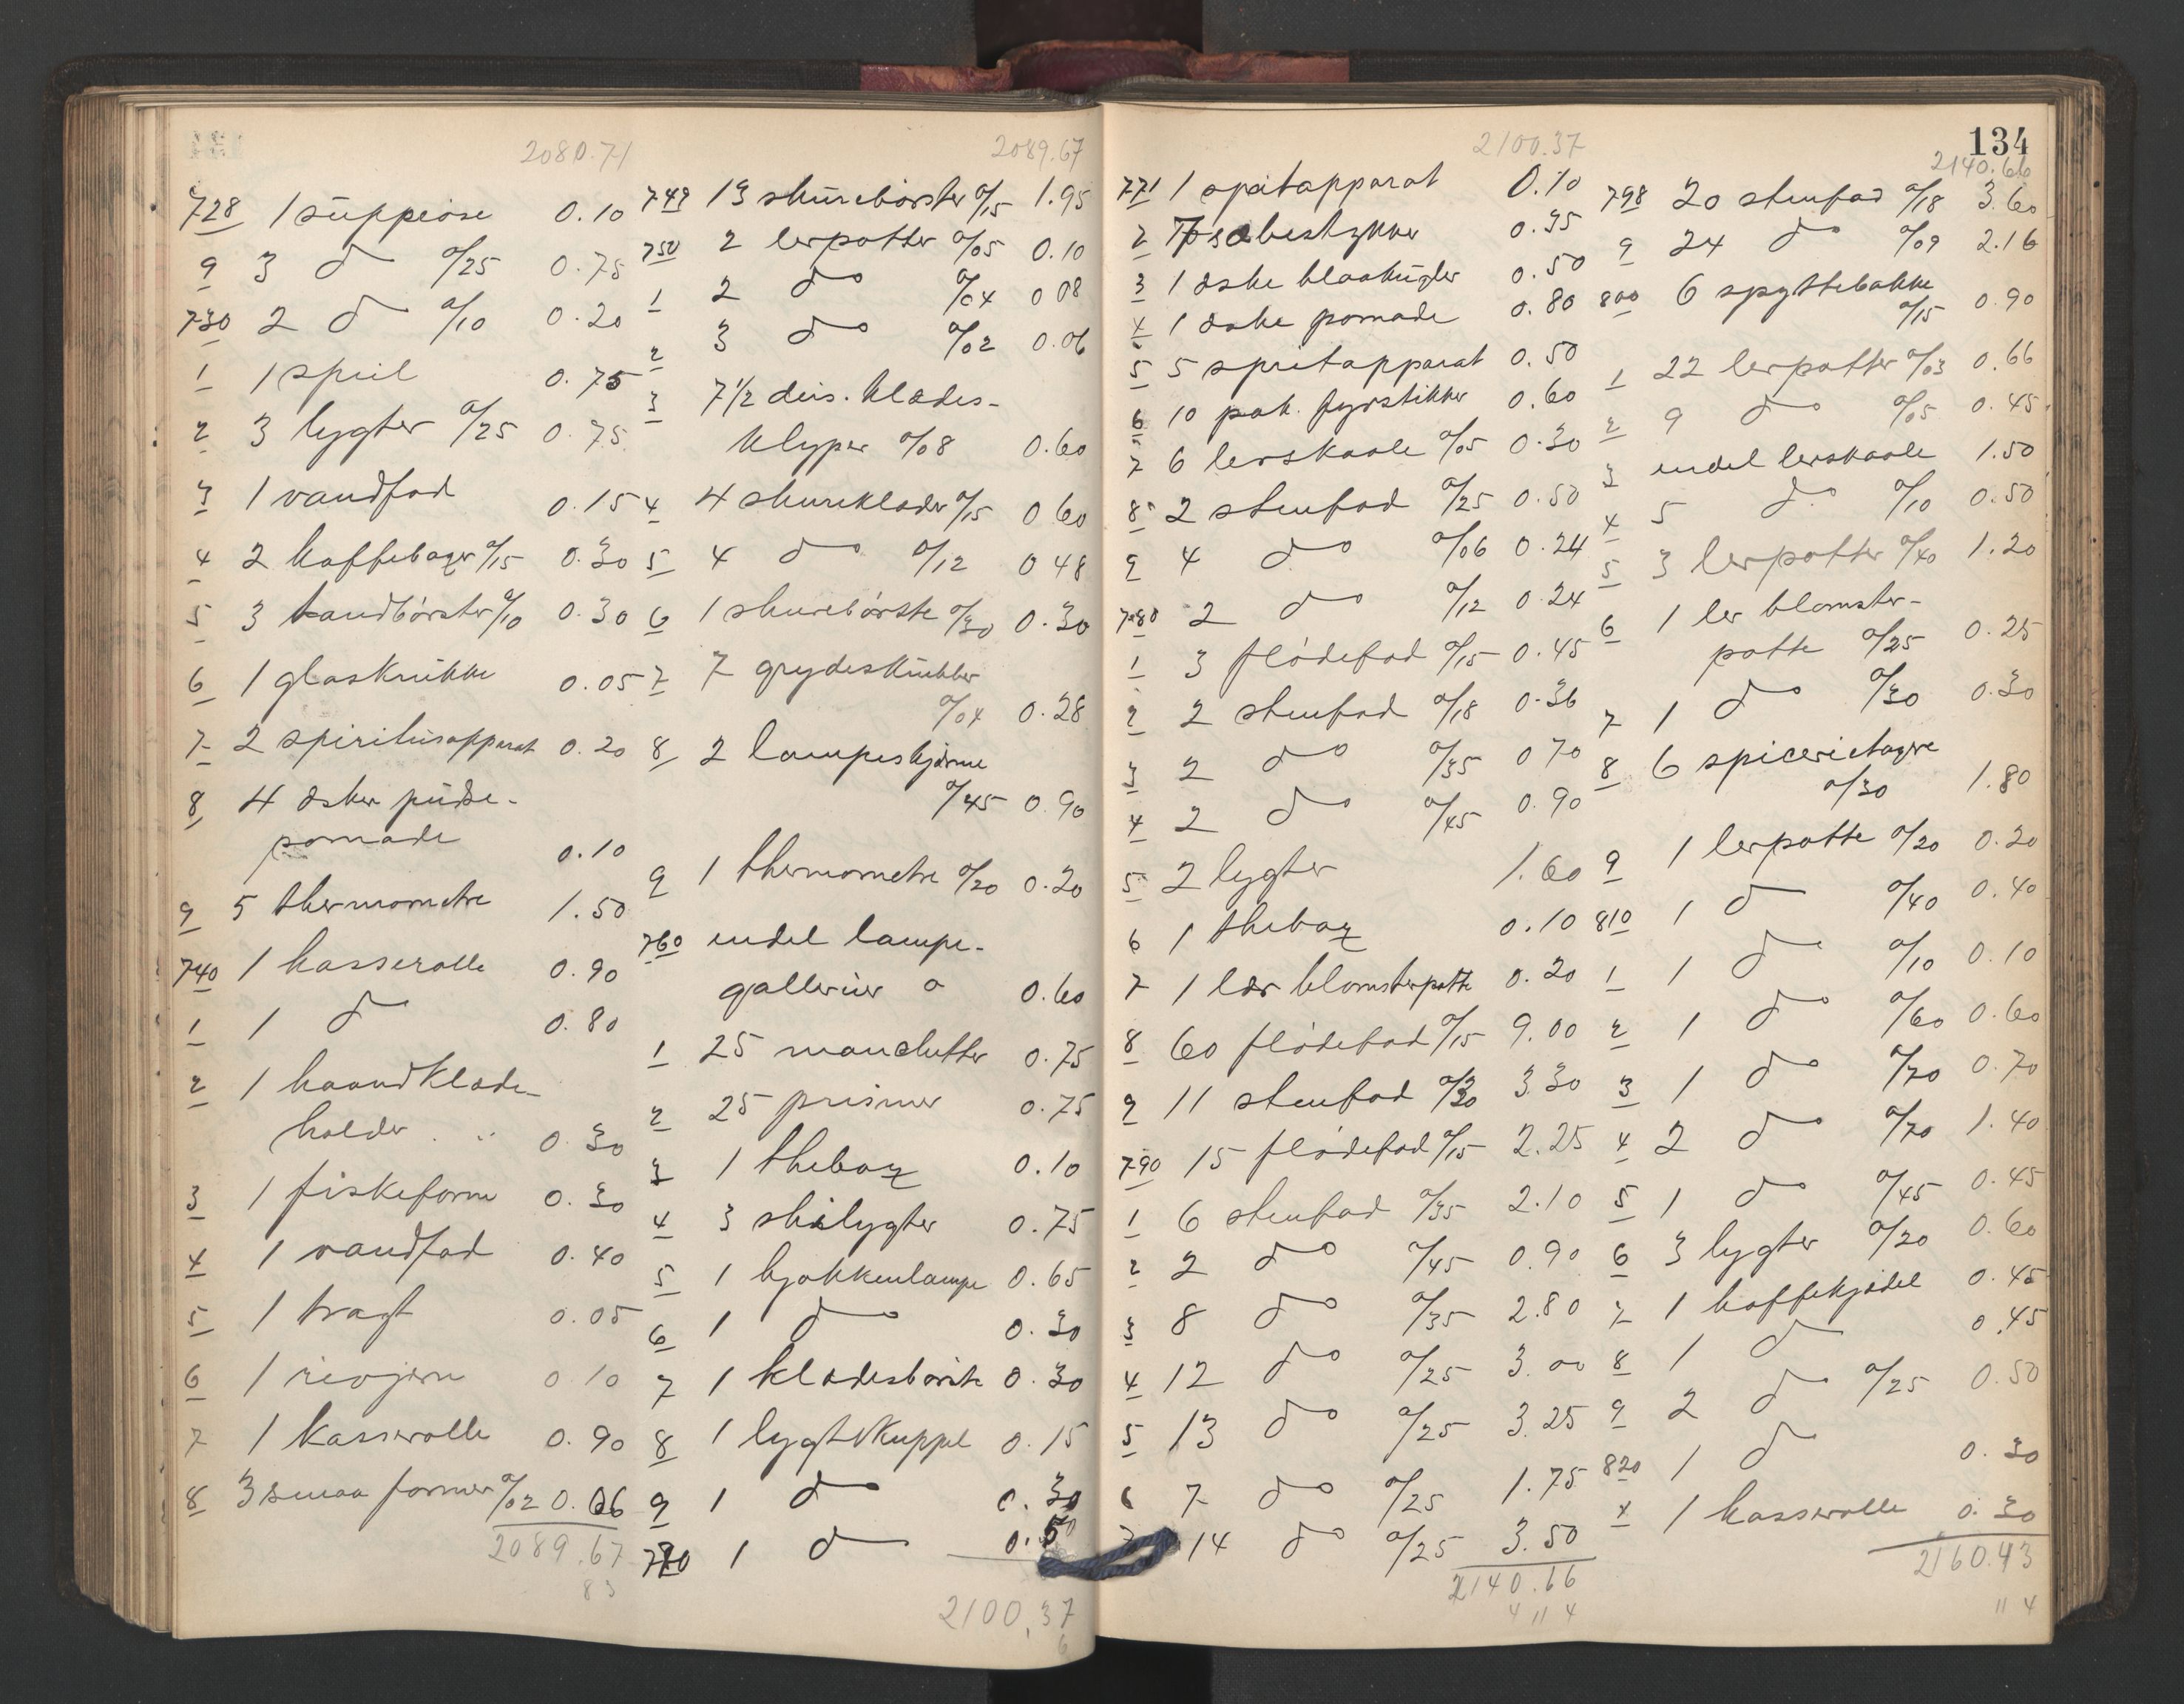 2080.71
728 1 suppeøse 0.10
9 3 do a/25 0.75
730 2 do a/10 0.20
1 1 speil 0.75
2 3 lygter a/25 0.75
3 1 vandfad 0.15
4 2 kaffebager a/15 0.30
5 3 haandbørster a/10 0.30
6 1 glaskrukke 0.05
7 2 spiritusapparat 0.20
8 4 æsker pudse-
pomade 0.10
9 5 thermometre 1.50
740 1 kasserolle 0.90
1 1 do 0.80
2 1 haandklæde-
holder 0.30
3 1 fiskeform 0.30
4 1 vandfad 0.40
5 1 tragt 0.05
6 1 rivjern 0.10
7 1 kasserolle 0.90
8 3 smaa former a/02 0.06
2089.67
83
2089.67
749 13 skurebørster a/15 1.95
750 2 lerpotter a/05 0.10
1 2 do a/04 0 08
2 3 do a/02 0.06
3 7 1/2 dus. klædes-
klyper a/08 0.60
4 4 skureklæder a/15 0 60
5 4 do a/12 0 48
6 1 skurebørste a/30 0.30
7 7 grydeskrubber
a/04 0.28
8 2 lampeskjærme
a/45 0.90
9 1 thermometre a/20 0.20
760 endel lampe-
gallerier a 0.60
1 25 manchetter 0.75
2 25 prismer 0.75
3 1 thebox 0.10
4 3 skilygter 0.75
5 1 kjøkkenlampe 0.65
6 1 do 0.30
7 1 klædesbørste 0.30
8 1 lygtekuppel 0.15
9 1 do 0.30
770 1 do 0.50
2100.37
6
134
2100.37
771 1 spritapparat 0.10
2 7 sæbestykker 0.35
3 1 æske blaakugler 0.50
4 1 æske pomade 0.80
5 5 spritapparat 0.50
6 10 pak. fyrstikker 0.60
7 6 lerskaale a/05 0.30
8 2 stenfad a/25 0.50
9 4 do a/06 0.24
780 2 do a/12 0.24
1 3 flødefad a/15 0.45
2 2 stenfad a/18 0.36
3 2 do a/35 0 70
4 2 do a/45 0.90
5 2 lygter 1.60
6 1 thebox 0.10
7 1 lær blomsterpotte 0.20
8 60 flødefad a/15 9.00
9 11 stenfad a/30 3.30
790 15 flødefad a/15 2.25
1 6 stenfad a/35 2.10
2 2 do a/45 0.90
3 8 do a/35 2.80
4 12 do a/25 3.00
5 13 do a/25 3.25
6 7 do a/25 1.75
7 14 do a/25 3.50
2140.66
4 11 4
2140.66
798 20 stenfad a/18 3.60
9 24 do a/09 2.16
800 6 spyttebakke
a/15 0.90
1 22 lerpotter a/03 0.66
2 9 do a/05 0.45
3 endel lerskaale 1.50
4 5 do a/10 0.50
5 3 lerpotter a/40 1.20
6 1 ler blomster-
potte a/25 0.25
7 1 do a/30 0.30
8 6 spicerietagere
a/30 1.80
9 1 lerpotte a/20 0.20
810 1 do a/40 0.40
1 1 do a/10 0.10
2 1 do a/60 0.60
3 1 do a/70 0.70
4 2 do a/70 1.40
5 1 do a/45 0.45
6 3 lygter a/20 0.60
7 1 kaffekjedel 0.45
8 1 do 0.45
9 2 do a/25 0.50
820 1 do 0.30
1 1 kasserolle 0.30
2160.43
11 4